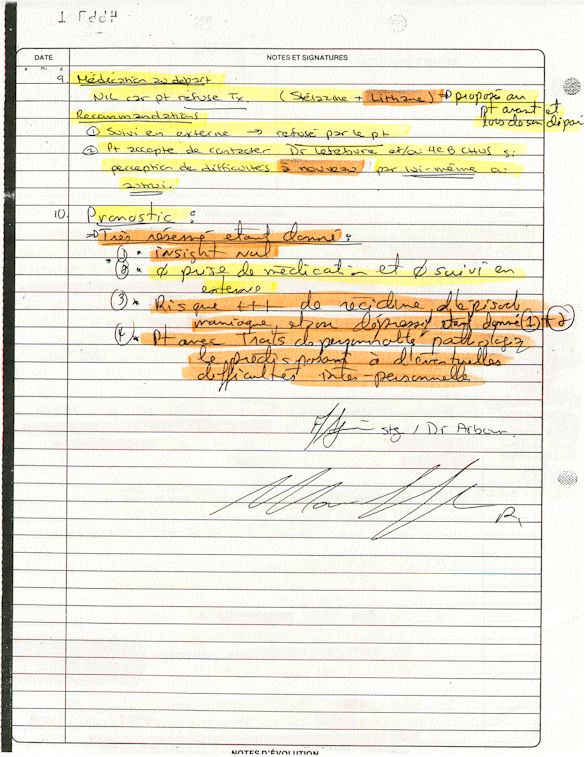 DATE
NOTES ET SIGNATURES
9. Médication au départ
NIL car pt refuse Tx (Stelazine + Lithane) → proposé au
pt avant et
lors de son départ
Recommandations
① Suivi en externe → refusé par le pt
② Pt accepte de contacter Dr Lefebvre et/ou 4e B CHUS si
perception de difficultés à nouveau par lui-même ou
autrui.
10. Pronostic :
⇒ Très réservé étant donné :
① * insight nul
② * ∅ prise de médication et ∅ suivi en
externe
③ * Risque +++ de récidive d'épisode
maniaque et/ou dépressif étant donné ① + ②
④ * Pt avec traits de personnalité pathologiq
le prédisposant à d'éventuelles
difficultés inter-personnelle
stg / Dr Arbour
R1
NOTES D'ÉVOLUTION